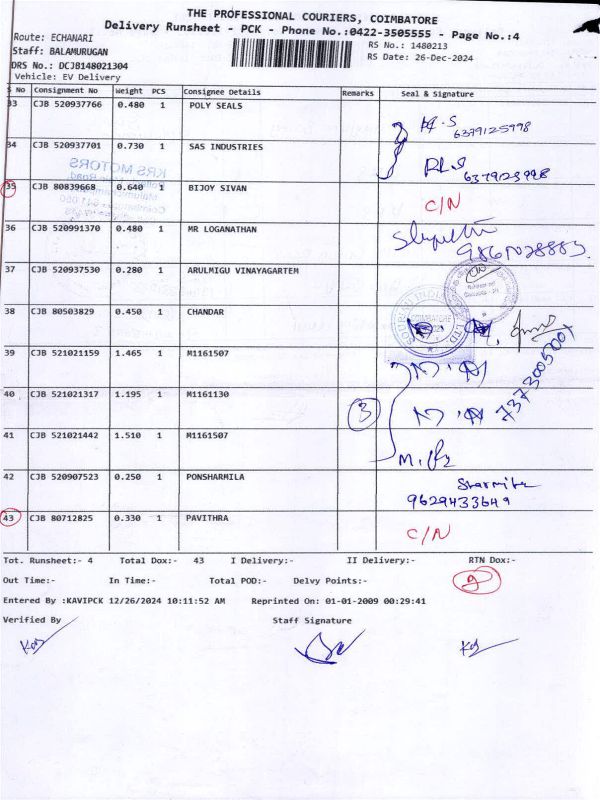 THE PROFESSIONAL COURIERS, COIMBATORE
Delivery Runsheet - PCK - Phone No.:0422-3505555 - Page No.:4
Route: ECHANARI
RS No.: 1480213
Staff: BALAMURUGAN
RS Date: 26-Dec-2024
DRS No.: DCJB148021304
Vehicle: EV Delivery
S No Consignment No Weight PCS Consignee Details Remarks Seal & Signature
33 CJB 520937766 0.480 1 POLY SEALS
6379125998
34 CJB 520937701 0.730 1 SAS INDUSTRIES
KRS MOTORS
35 CJB 80839668 0.640 1 BIJOY SIVAN C/N
36 CJB 520991370 0.480 1 MR LOGANATHAN
37 CJB 520937530 0.280 1 ARULMIGU VINAYAGARTEM
38 CJB 80503829 0.450 1 CHANDAR
COIMBATORE
39 CJB 521021159 1.465 1 M1161507
40 CJB 521021317 1.195 1 M1161130 3
41 CJB 521021442 1.510 1 M1161507
42 CJB 520907523 0.250 1 PONSHARMILA Sharmila
9629433649
43 CJB 80712825 0.330 1 PAVITHRA C/N
Tot. Runsheet:- 4 Total Dox:- 43 I Delivery:- II Delivery:- RTN Dox:-
Out Time:- In Time:- Total POD:- Delvy Points:- 9
Entered By :KAVIPCK 12/26/2024 10:11:52 AM Reprinted On: 01-01-2009 00:29:41
Verified By Staff Signature